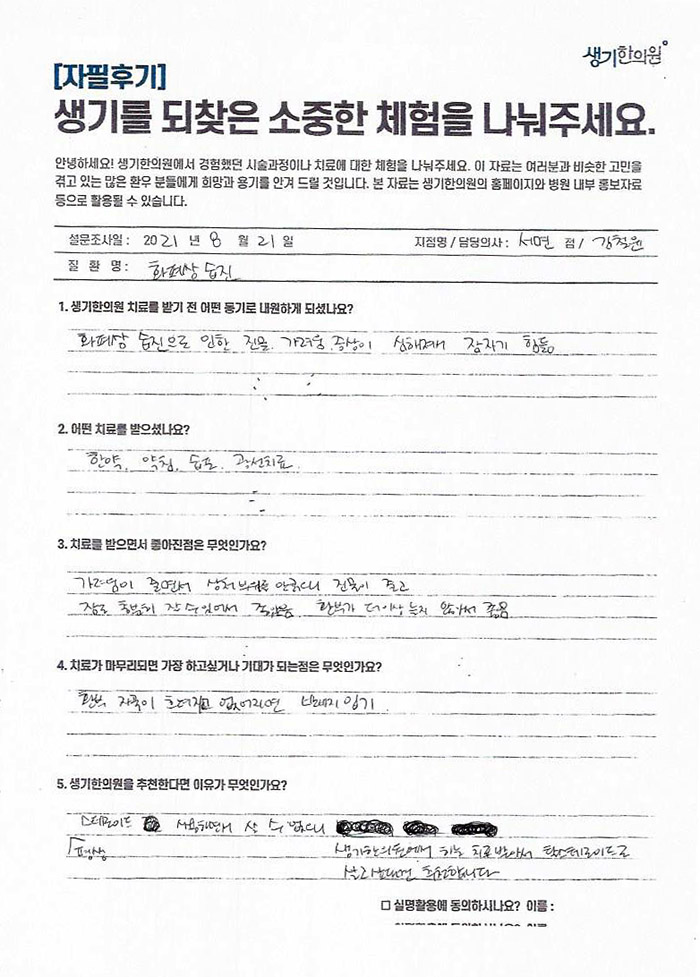 생기한의원
[자필후기]
생기를 되찾은 소중한 체험을 나눠주세요.
안녕하세요! 생기한의원에서 경험했던 시술과정이나 치료에 대한 체험을 나눠주세요. 이 자료는 여러분과 비슷한 고민을
겪고 있는 많은 환우 분들에게 희망과 용기를 안겨 드릴 것입니다. 본 자료는 생기한의원의 홈페이지와 병원 내부 홍보자료
등으로 활용될 수 있습니다.
설문조사일 : 2021 년 8 월 21 일 지점명 / 담당의사 : 서면 점 / 강철원
질 환 명 : 화폐상 습진
1. 생기한의원 치료를 받기 전 어떤 동기로 내원하게 되셨나요?
화폐상 습진으로 인한 진물, 가려움 증상이 심해져서 잠자기 힘듦
2. 어떤 치료를 받으셨나요?
한약, 약침, 습포, 광선치료
3. 치료를 받으면서 좋아진점은 무엇인가요?
가려움이 줄면서 상처부위를 안긁으니 진물이 줄고
잠도 충분히 잘 수 있어서 좋았음 환부가 더이상 늘지 않아서 좋음
4. 치료가 마무리되면 가장 하고싶거나 기대가 되는점은 무엇인가요?
환부 자국이 흐려지고 없어지면 반바지 입기
5. 생기한의원을 추천한다면 이유가 무엇인가요?
스테로이드 사용하면서 살 수 없으니
평생 생기한의원에서 하는 치료 받아서 탈스테로이드로
살고싶다면 추천합니다
□ 실명활용에 동의하시나요? 이름 :